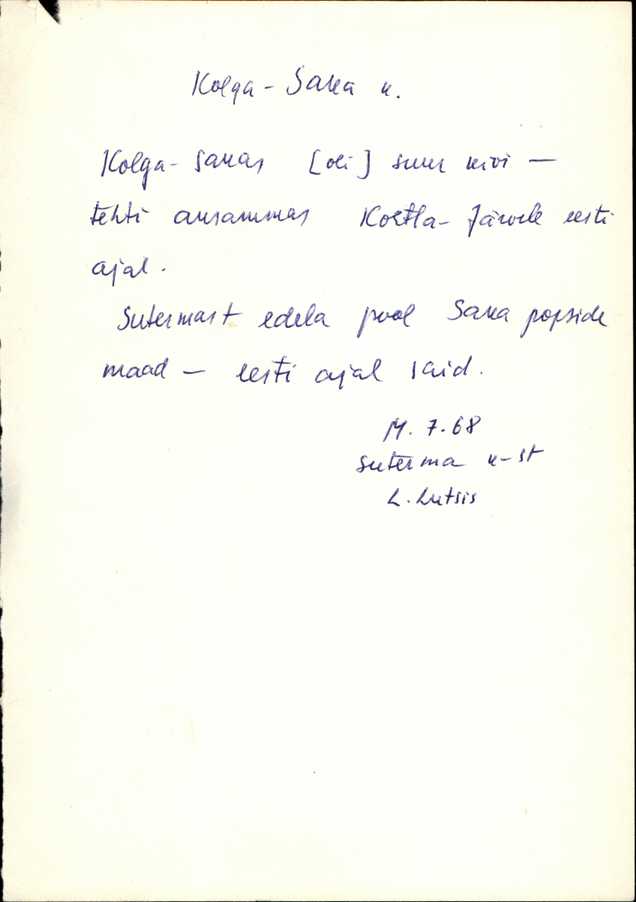 Kolga-Saka k.
Kolga-Sakas [oli] suur kivi —
tehti ausammas Kohtla-Järvele eesti
ajal.
Sutermast edela pool Saka popside
maad — eesti ajal said.
7.68
Suterma k-st
L. Lutsis